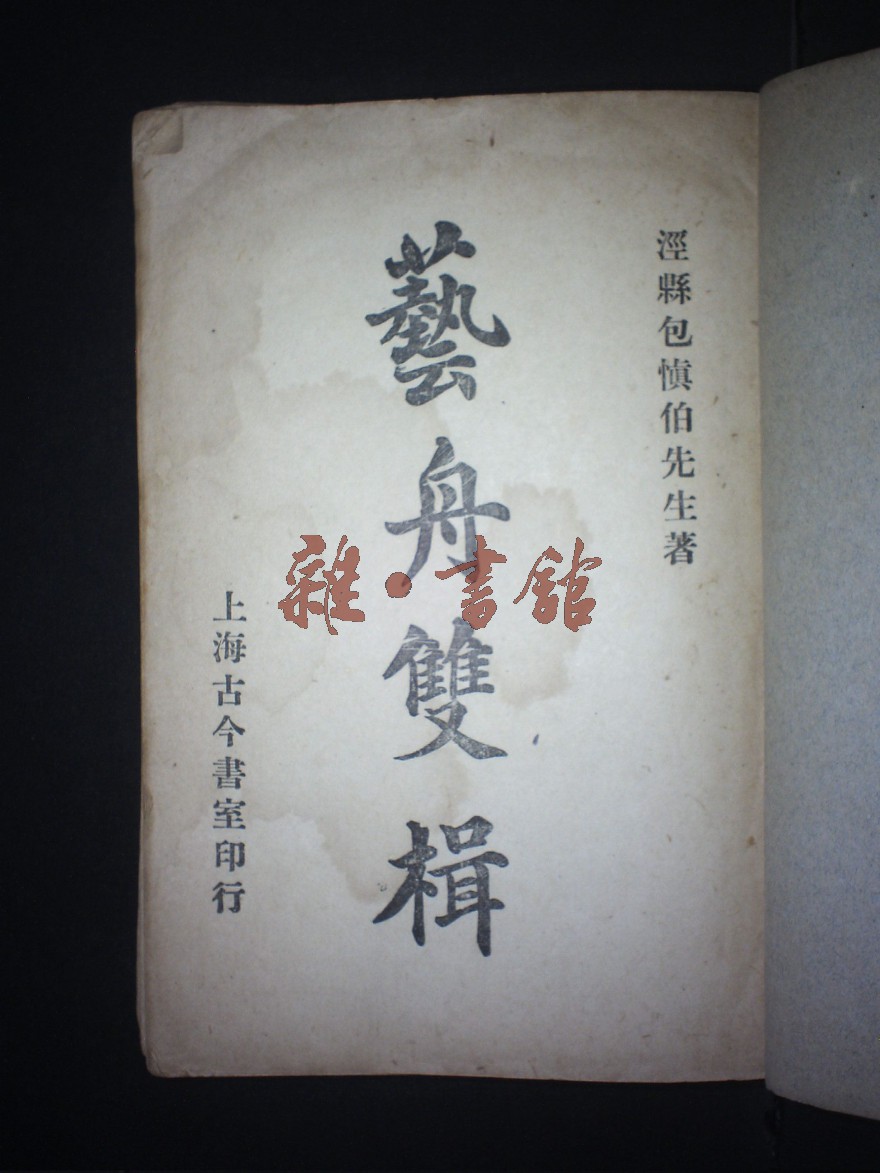 涇縣包慎伯先生著
藝舟雙楫
上海古今書室印行
雜·書館